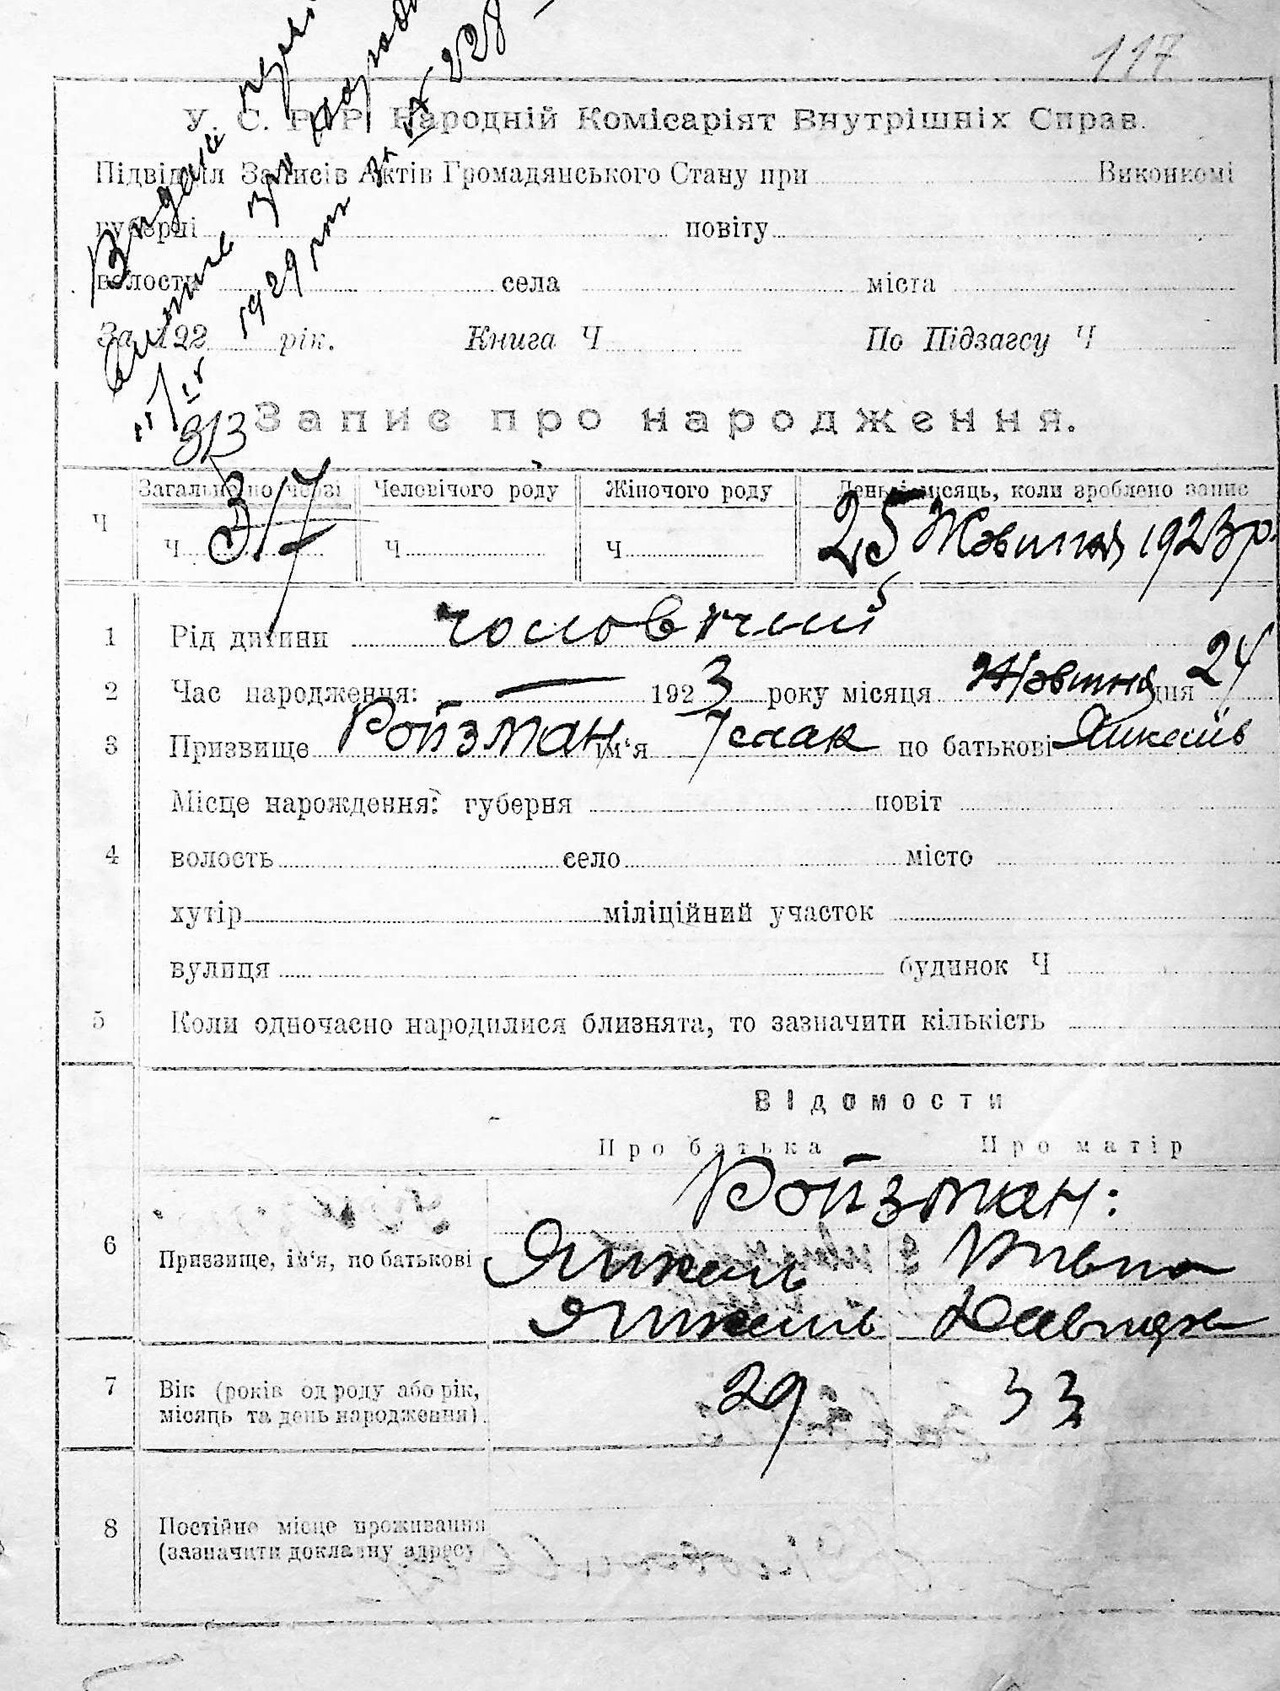 117
Видано
1929 р. за № 228
У. С. Р. Р. Народній Комісаріят Внутрішніх Справ.
Підвідділ Записів Актів Громадянського Стану при Виконкомі
губерні повіту
волости села міста
За 192 рік. Книга Ч По Підзагсу Ч
313
Запис про народження.
Загальне по черзі Человічого роду Жіночого роду День і місяць, коли зроблено запис
Ч Ч 317 Ч Ч 25 Жовтня 1923 р.
1 Рід дитини чоловічий
2 Час народження: — 1923 року місяця Жовтня дня 24
3 Призвище Ройзман ім'я Ісаак по батькові Янкелів
Місце нарождення: губерня повіт
4 волость село місто
хутір міліційний участок
вулиця будинок Ч
5 Коли одночасно народилися близнята, то зазначити кількість
Відомости
Про батька Про матір
Ройзман:
6 Призвище, ім'я, по батькові Янкель
Янкелів Давидна
7 Вік (років од роду або рік, місяць та день народження). 29 33
8 Постійне місце проживання
(зазначити докладну адресу